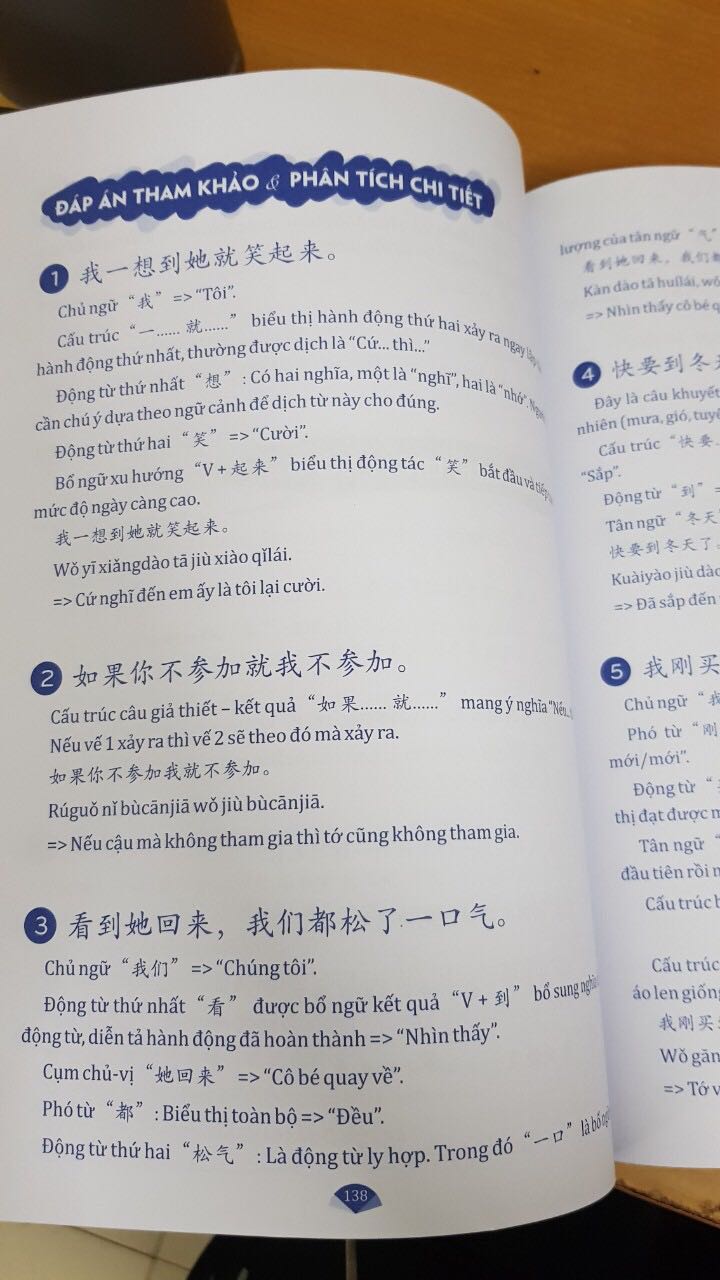 ĐÁP ÁN THAM KHẢO & PHÂN TÍCH CHI TIẾT
1 我一想到她就笑起来。
Chủ ngữ “我” => “Tôi”.
Cấu trúc “一...... 就......” biểu thị hành động thứ hai xảy ra ngay lập
hành động thứ nhất, thường được dịch là “Cứ... thì...”
Động từ thứ nhất “想” : Có hai nghĩa, một là “nghĩ”, hai là “nhớ”.
cần chú ý dựa theo ngữ cảnh để dịch từ này cho đúng.
Động từ thứ hai “笑” => “Cười”.
Bổ ngữ xu hướng “V + 起来” biểu thị động tác “笑” bắt đầu và tiếp
mức độ ngày càng cao.
我一想到她就笑起来。
Wǒ yī xiǎngdào tā jiù xiào qǐlái.
=> Cứ nghĩ đến em ấy là tôi lại cười.
2 如果你不参加就我不参加。
Cấu trúc câu giả thiết – kết quả “如果...... 就......” mang ý nghĩa “Nếu...
Nếu vế 1 xảy ra thì vế 2 sẽ theo đó mà xảy ra.
如果你不参加我就不参加。
Rúguǒ nǐ bùcānjiā wǒ jiù bùcānjiā.
=> Nếu cậu mà không tham gia thì tớ cũng không tham gia.
3 看到她回来，我们都松了一口气。
Chủ ngữ “我们” => “Chúng tôi”.
Động từ thứ nhất “看” được bổ ngữ kết quả “V + 到” bổ sung nghĩa
động từ, diễn tả hành động đã hoàn thành => “Nhìn thấy”.
Cụm chủ-vị “她回来” => “Cô bé quay về”.
Phó từ “都” : Biểu thị toàn bộ => “Đều”.
Động từ thứ hai “松气” : Là động từ ly hợp. Trong đó “一口” là bổ
138
lượng của tân ngữ “气”
看到她回来，我们
Kàn dào tā huílái, wǒ
=> Nhìn thấy cô bé
4 快要到冬
Đây là câu khuyết
nhiên (mưa, gió, tuyế
Cấu trúc “快要
“Sắp”.
Động từ “到”
Tân ngữ “冬天”
快要到冬天了
Kuàiyào jiù dào
=> Đã sắp đến
5 我刚买
Chủ ngữ “我
Phó từ “刚
mới/mới”.
Động từ “
thị đạt được
Tân ngữ “
đầu tiên rồi
Cấu trúc
Cấu trúc
áo len giống
我刚买
Wǒ gāng
=> Tớ